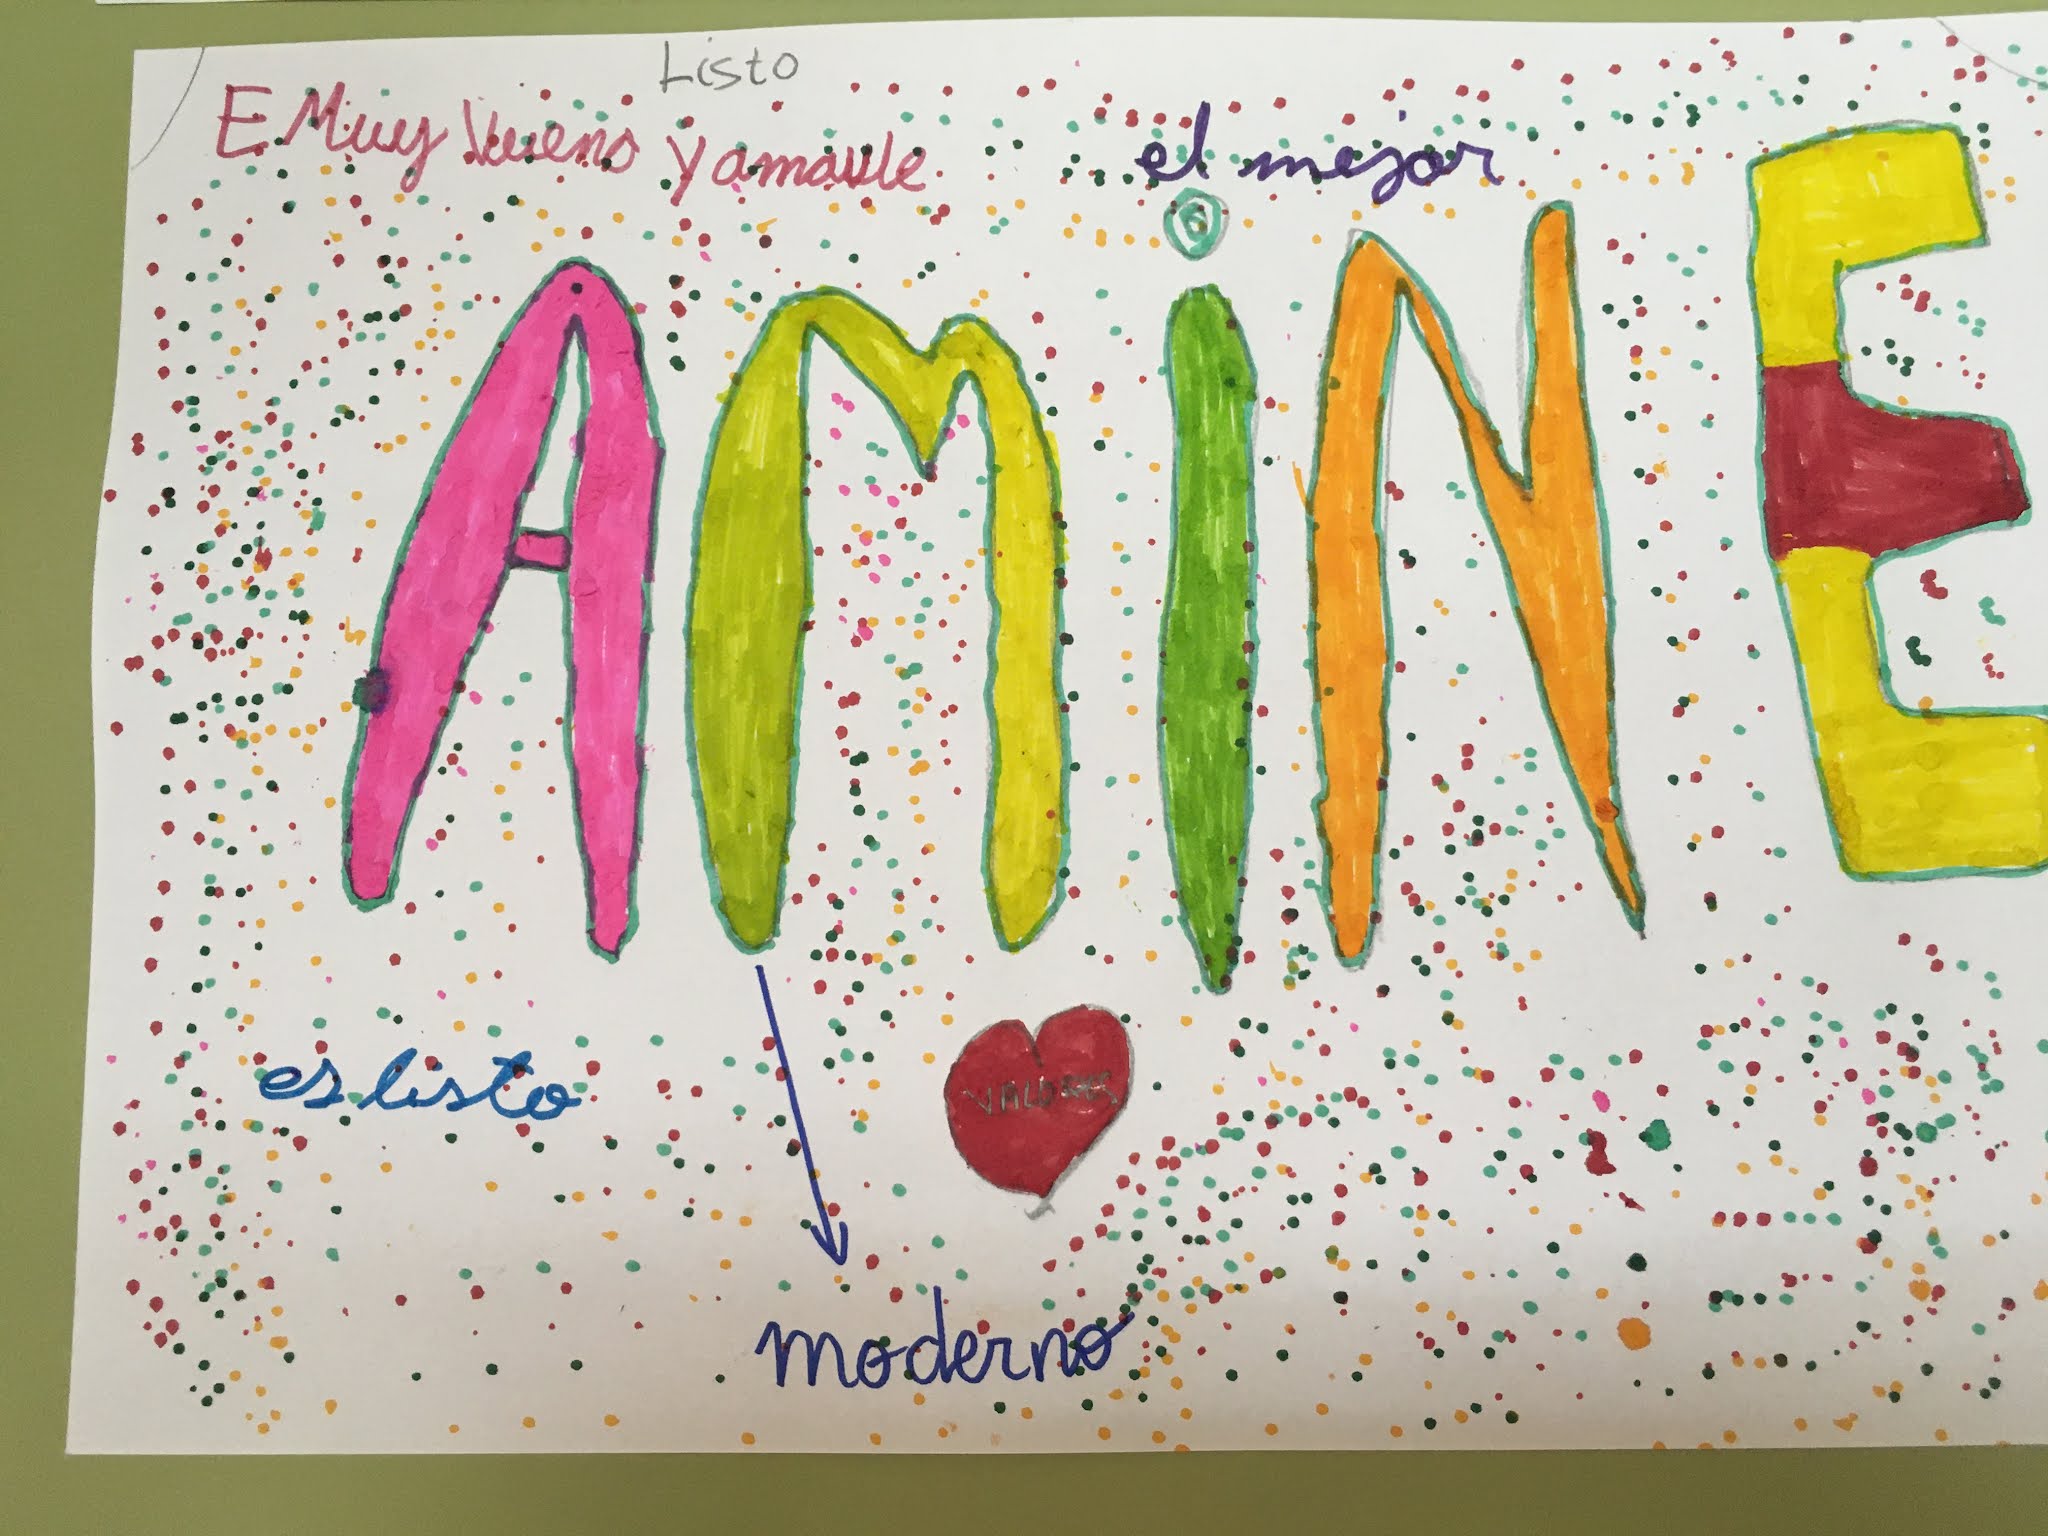 Listo
E Muy Vueno Yamavle
el mejor
AMiNE
es listo
VALORES
moderno